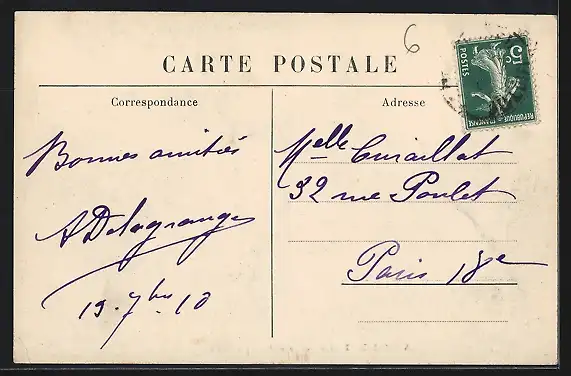 6
CARTE POSTALE
Correspondance
Adresse
Bonnes amitiés
A Delagrange
19. 7bre 10
Melle Curaillat
32 rue Poulet
Paris 18e
5c
POSTES
REPUBLIQUE FRANÇAISE